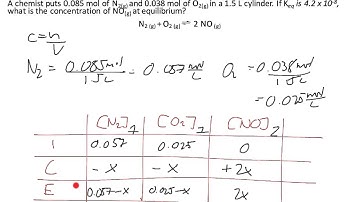 A chemist puts 0.085 mol of N2(g) and 0.038 mol of O2(g) in a 1.5 L cylinder. If Keq is 4.2 x 10-8,
what is the concentration of NO(g) at equilibrium?
N2 (g) + O2 (g) ⇌ 2 NO (g)
C = n/V
N2 = 0.085mol / 1.5L = 0.057 mol/L O2 = 0.038mol / 1.5L
= 0.025 mol/L
[N2]1 [O2]1 [NO]2
I 0.057 0.025 0
C - x - x + 2x
E 0.057-x 0.025-x 2x